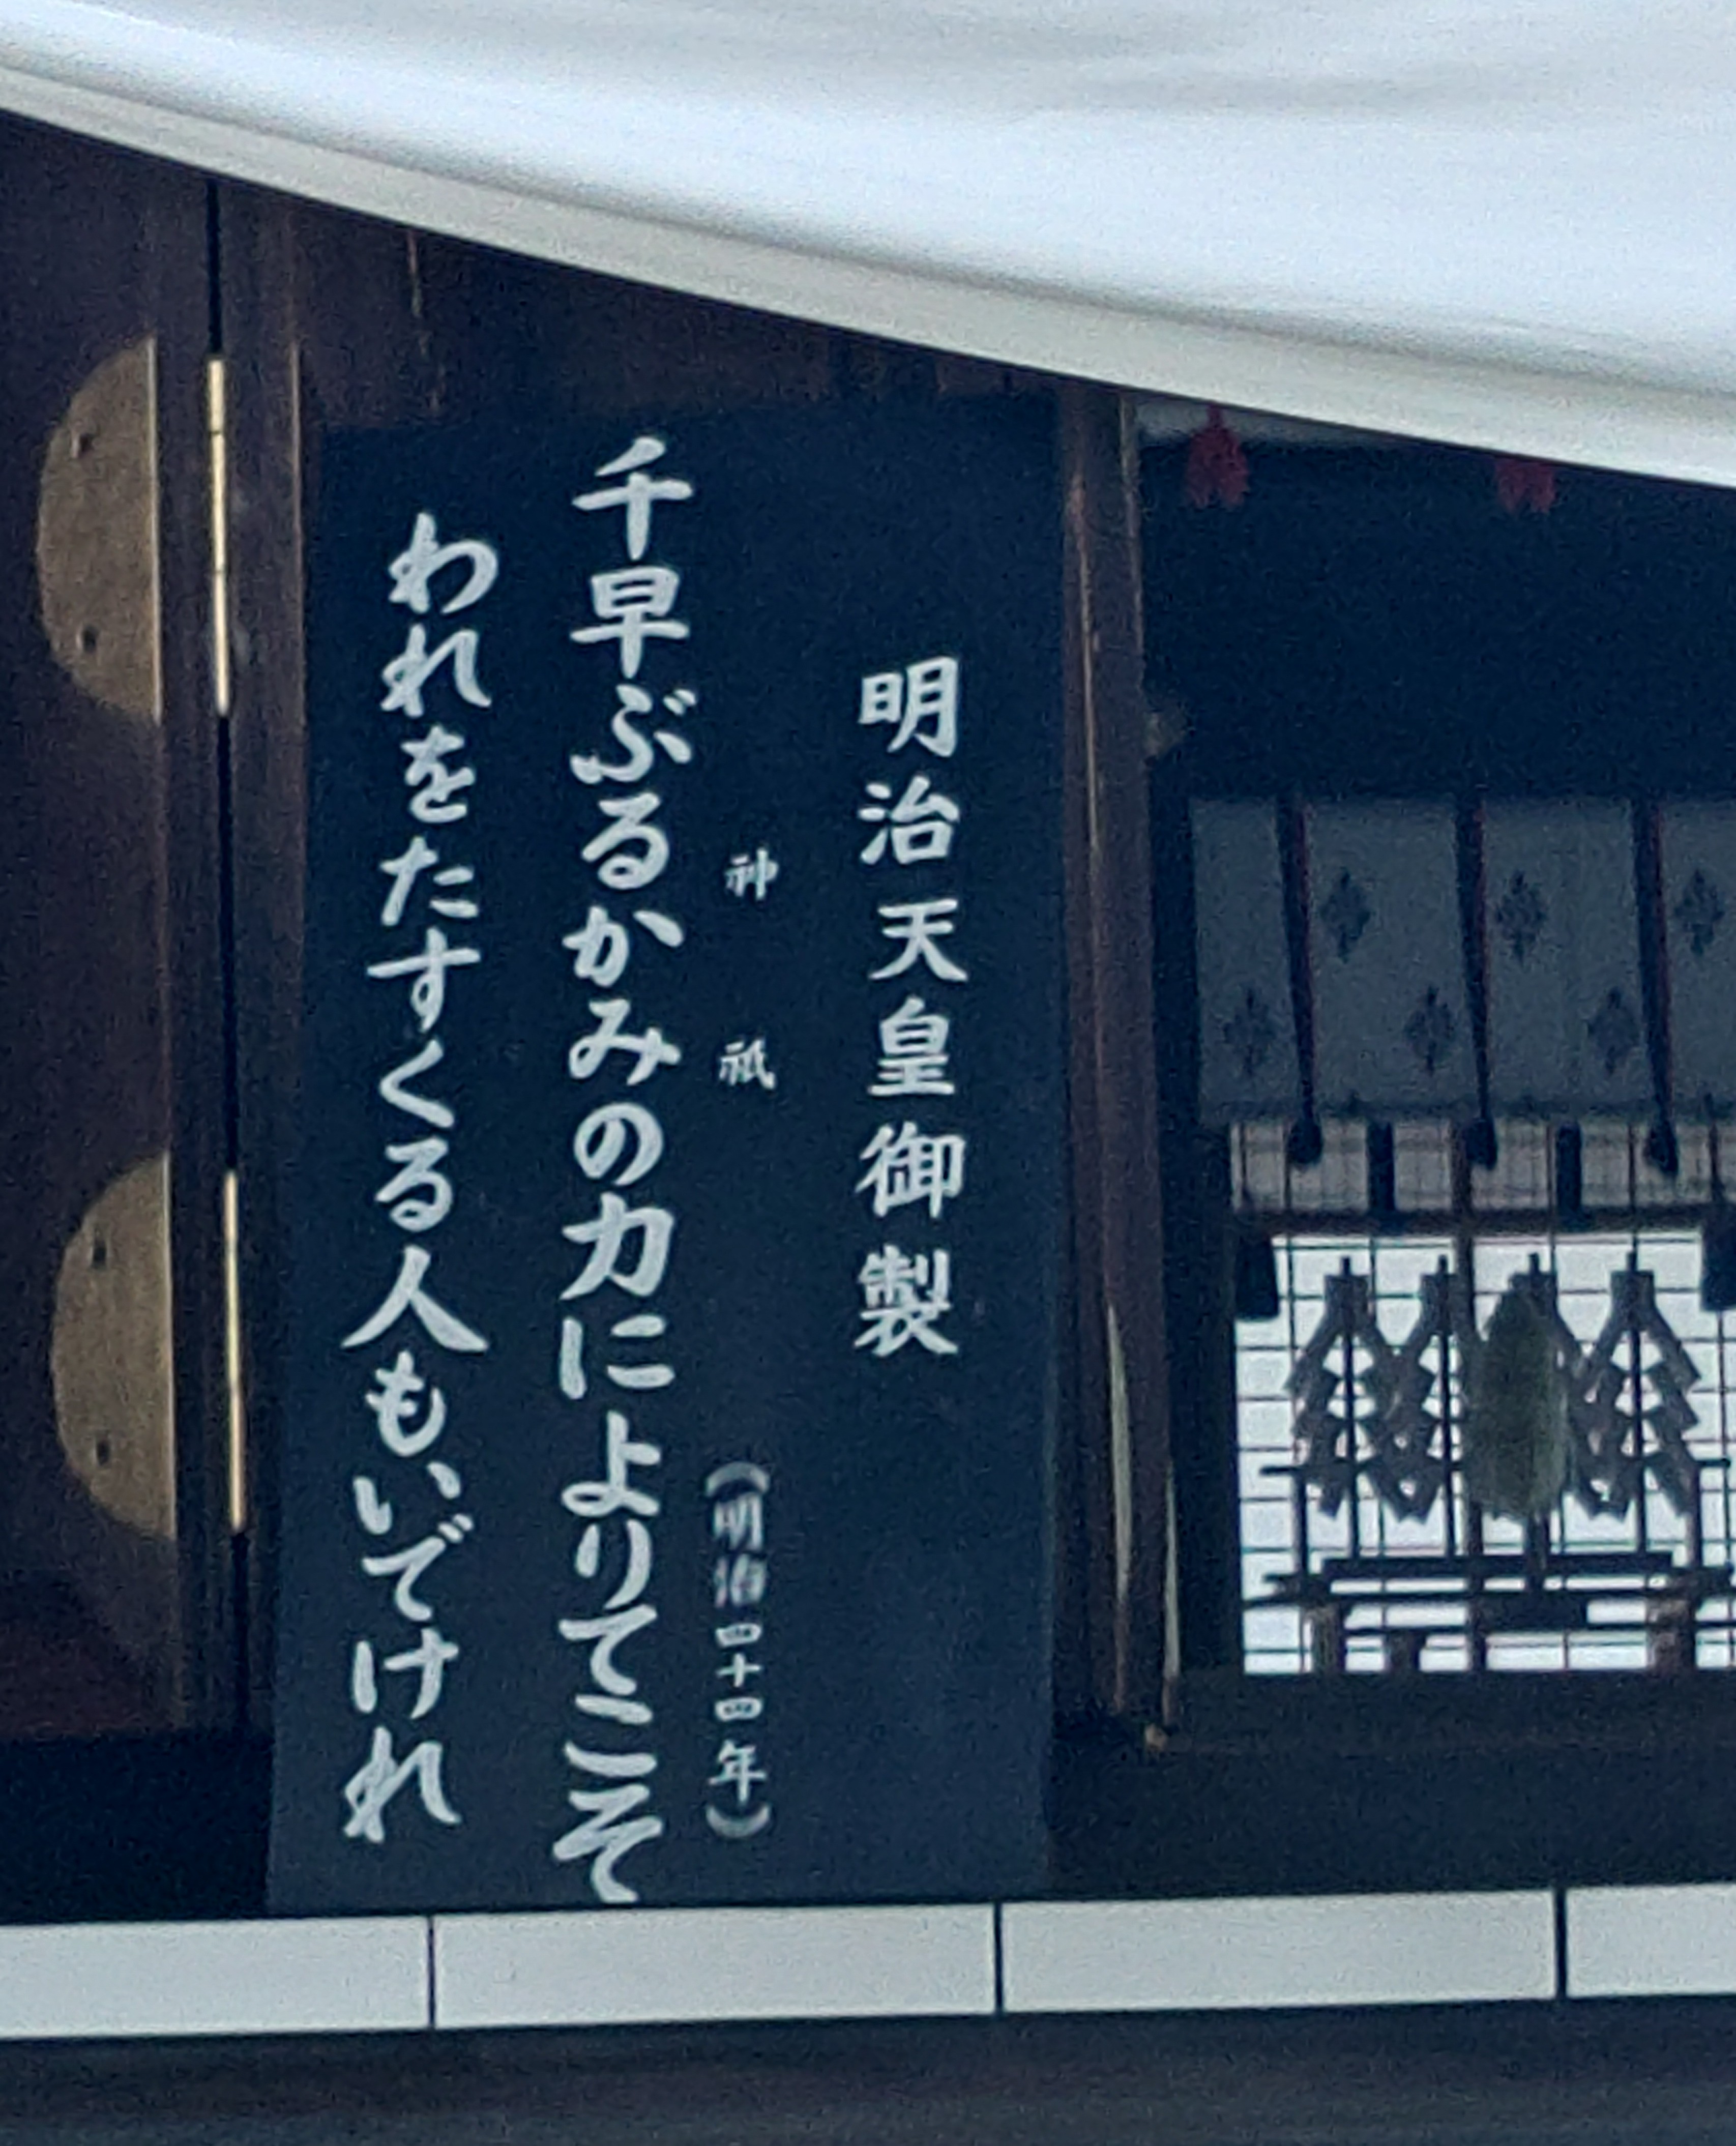 明治天皇御製
神祇 (明治四十四年)
千早ぶるかみの力によりてこそ
われをたすくる人もいでけれ